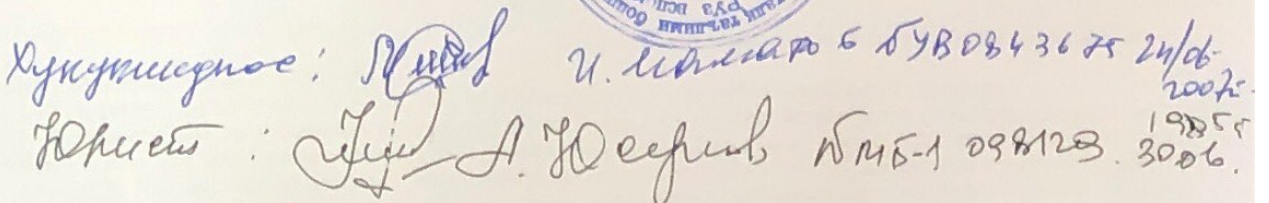 Хукукшидное: И. Маматов БУВ0843675 24/06-
2007г.
Юрист: А. Юсупов №МБ-1 098129. 1985г
30.06.